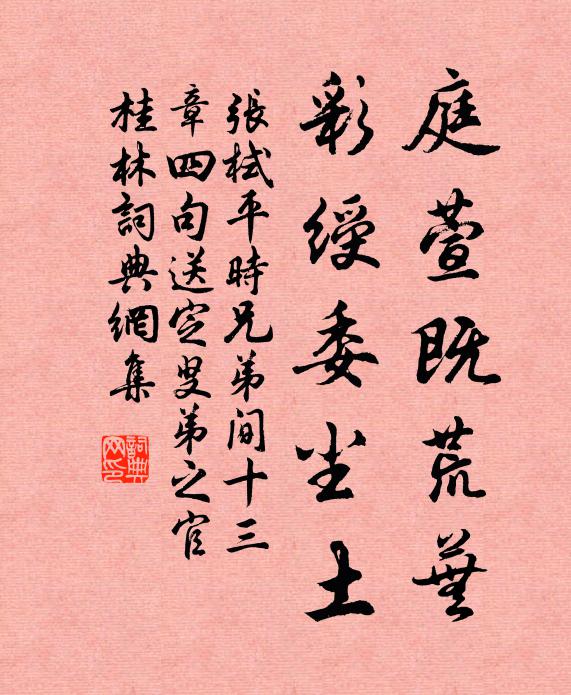 庭萱既荒蕪
彩綬委尘土
張栻平時兄弟间十三
章四句送定叟弟之官
桂林詞典網集
詞典网印